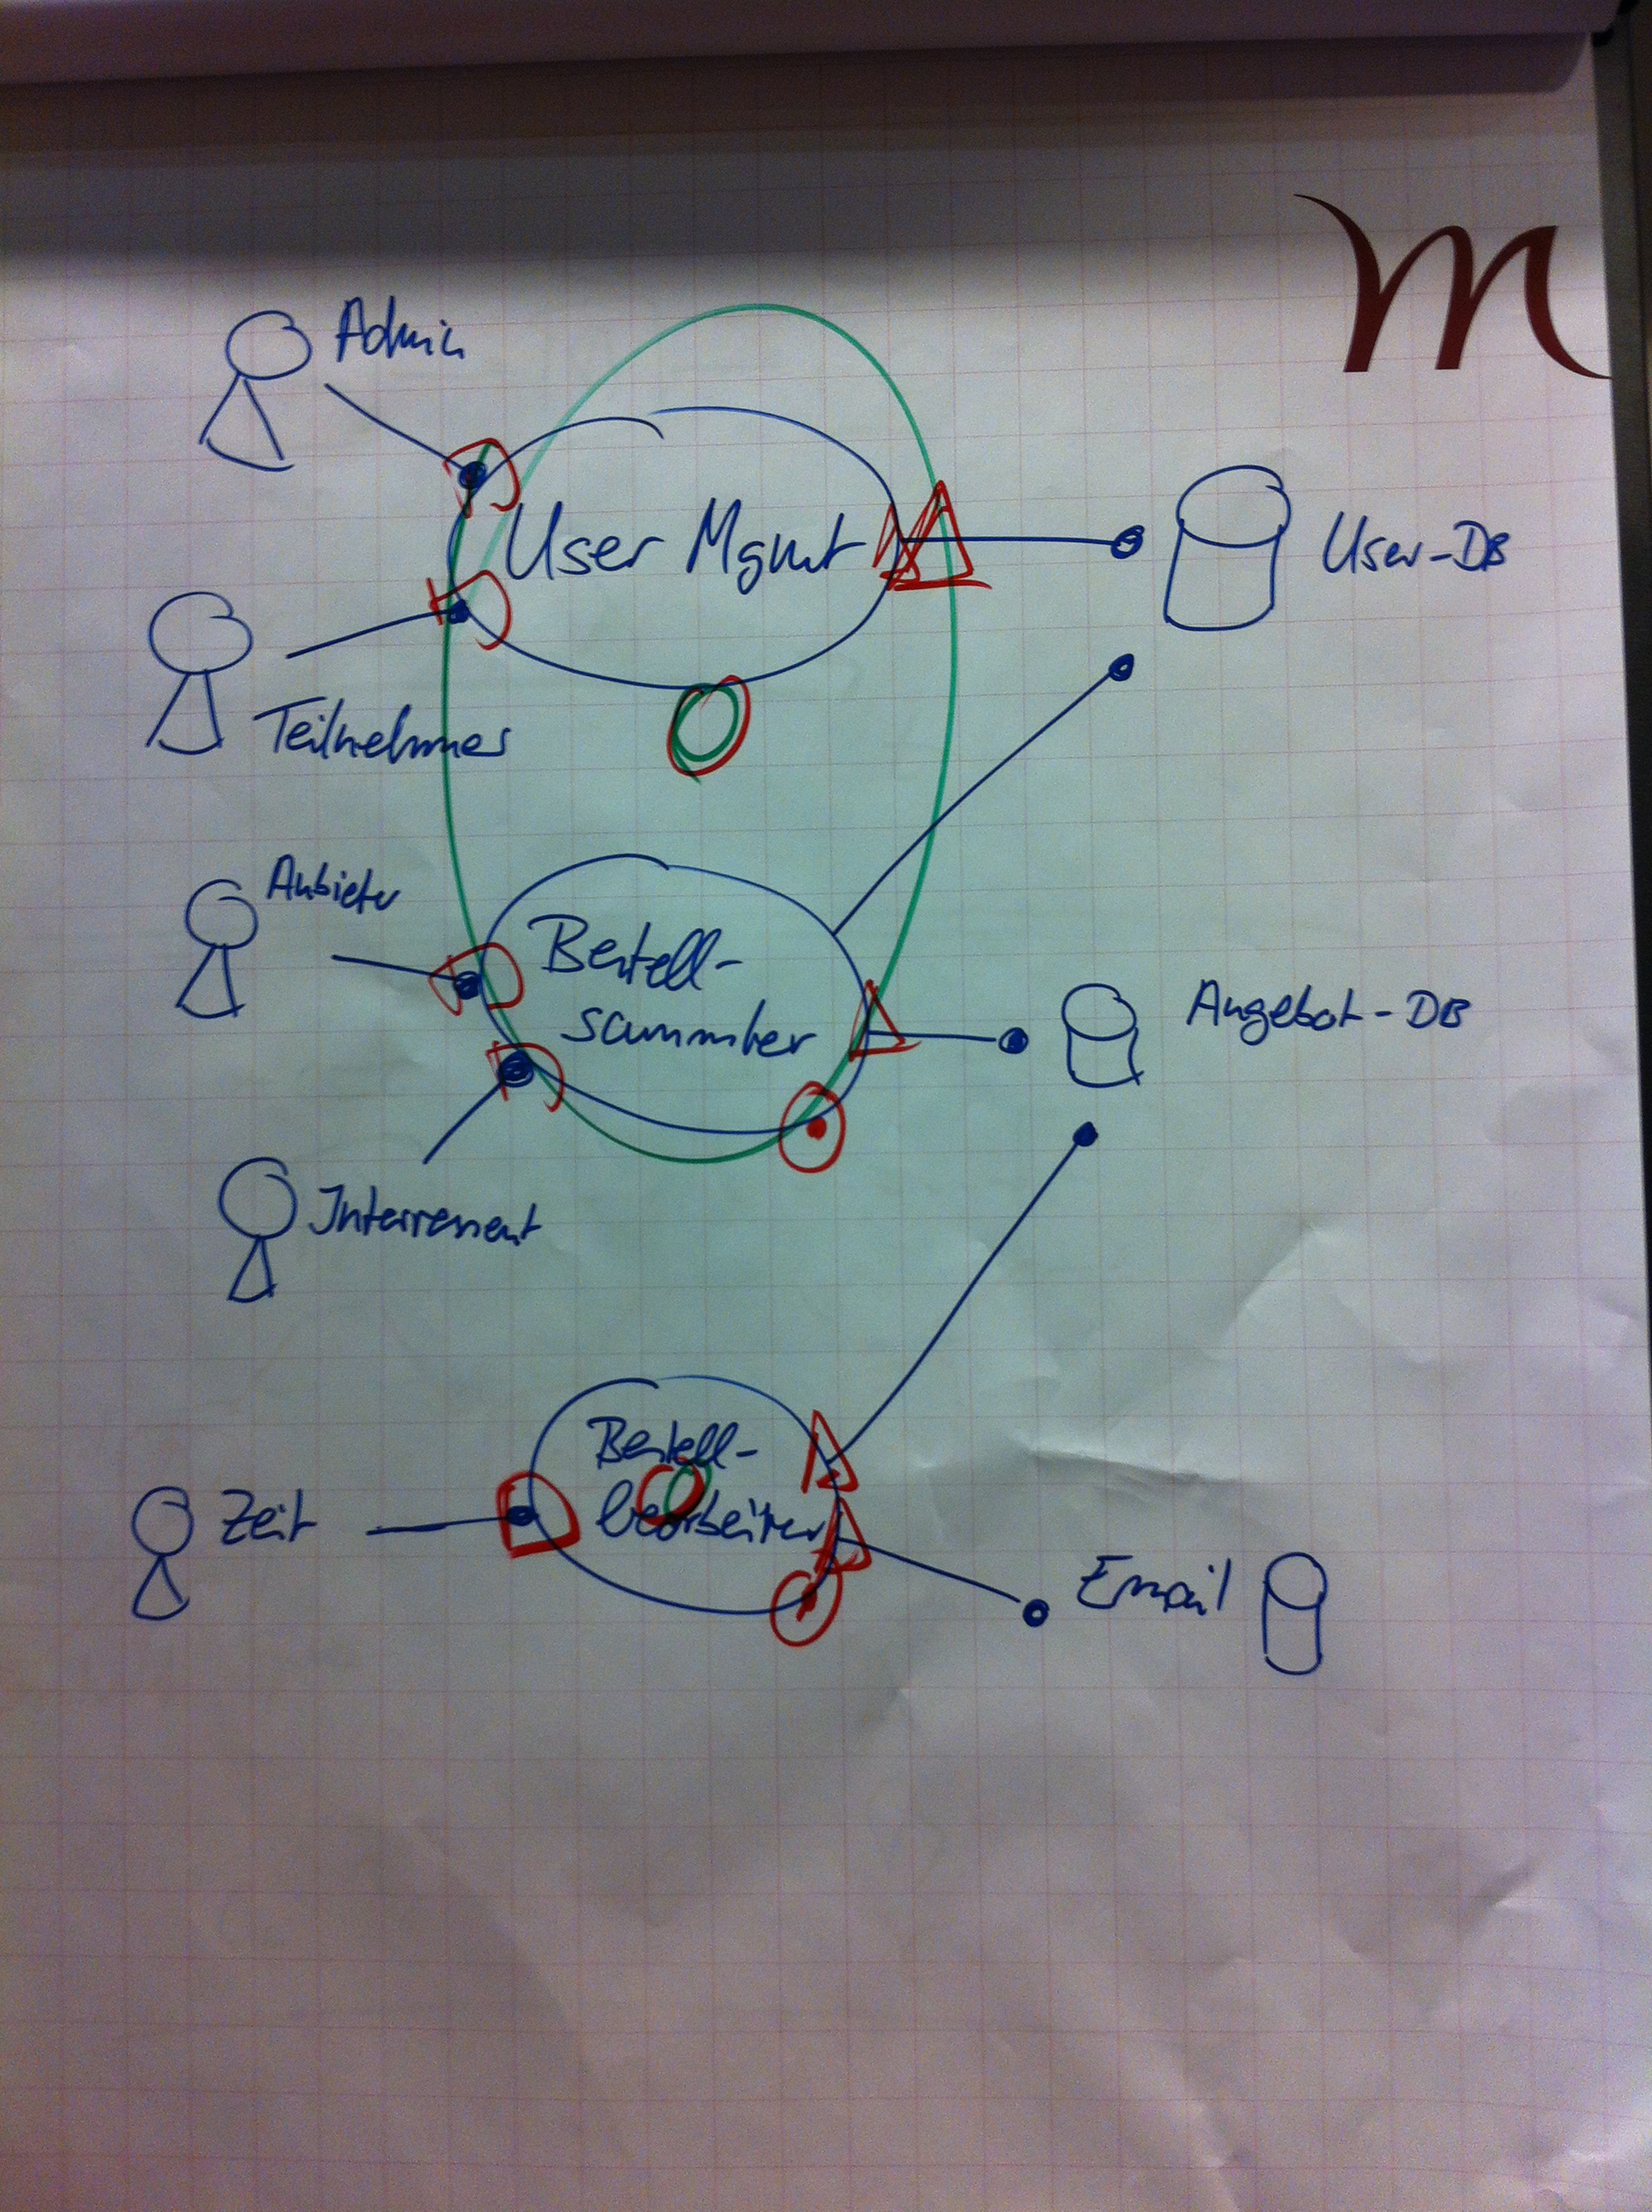 Admin
User Mgmt
User-DB
Teilnehmer
Anbieter
Bestell-
sammler
Angebot-DB
Interessent
Bestell-
bearbeiter
Zeit
Email
m